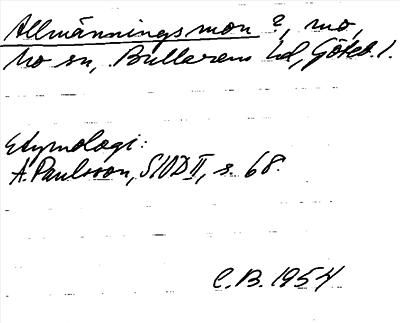 Allmänningsmon ?, mo,
Mo sn, Bullarens hd, Göteb. l.
Etymologi:
A. Paulsson, SIOD II, s. 68.
C.B. 1954